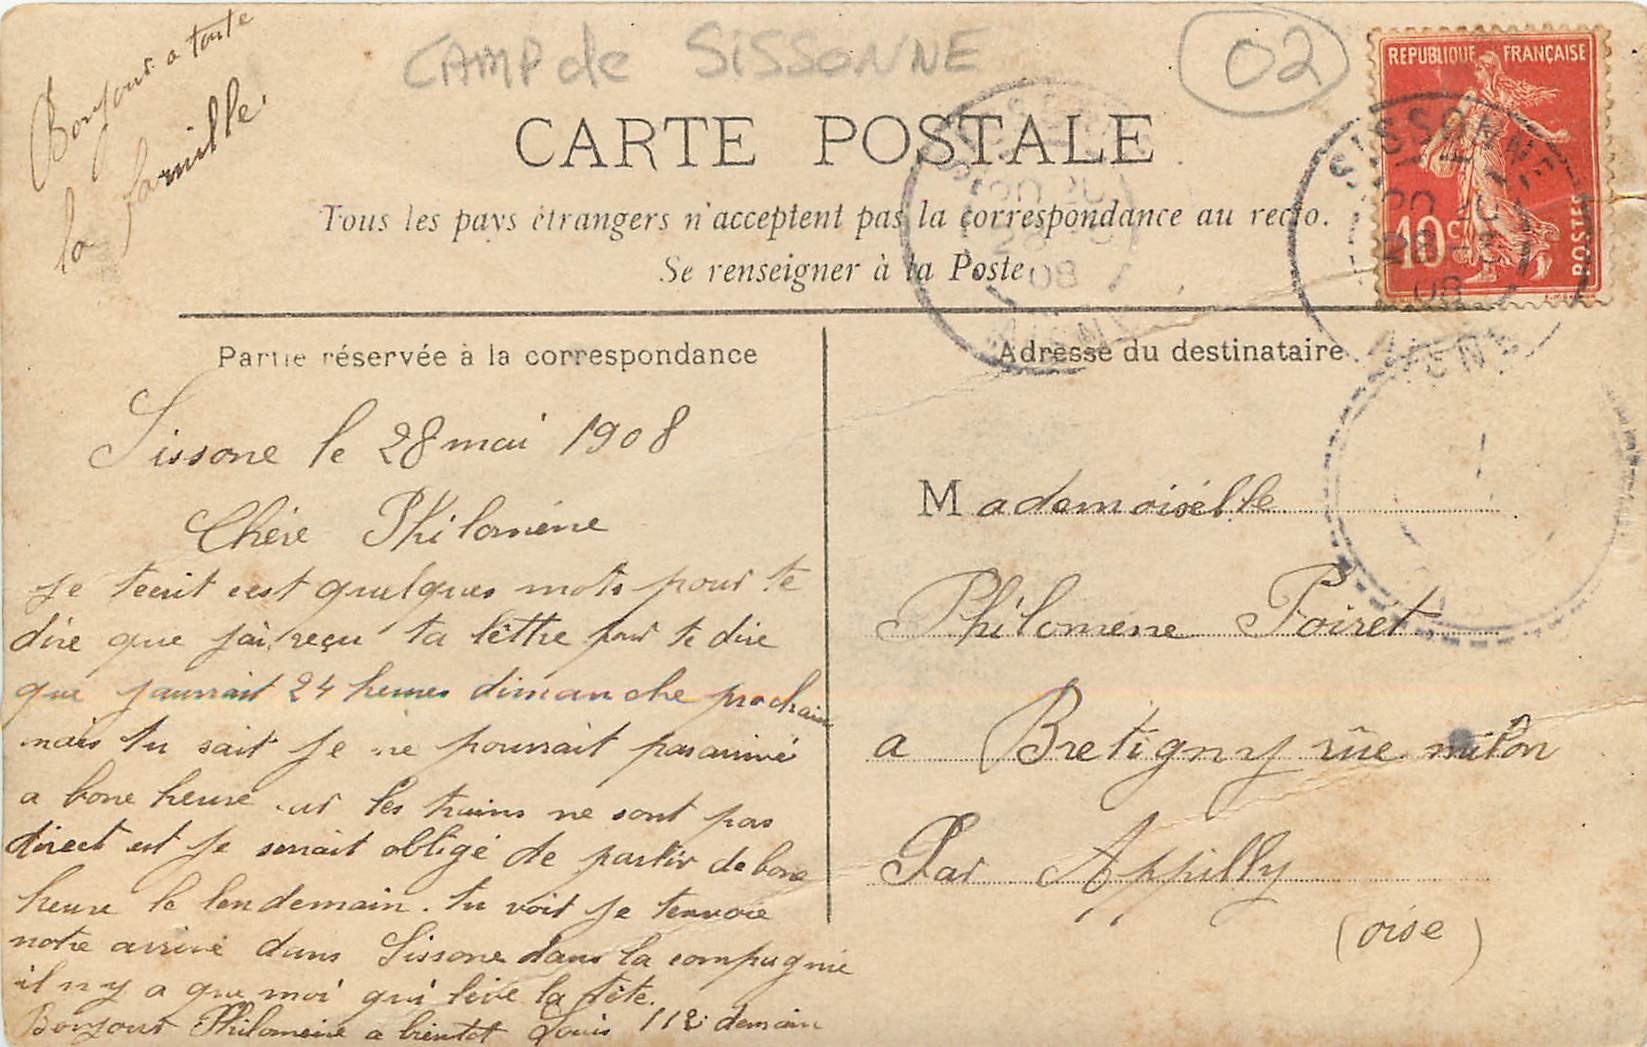 Bonjour a toute
la famille.
CAMP de SISSONNE
02
CARTE POSTALE
Tous les pays étrangers n'acceptent pas la correspondance au recto.
Se renseigner à la Poste
REPUBLIQUE FRANÇAISE
10c
POSTES
SISSONNE
28
08
AISNE
Partie réservée à la correspondance
Sissone le 28 mai 1908
Chére Philoméne
Je tecrit cest quelques mots pour te
dire que j'ai reçu ta lettre pour te dire
que jaurrait 24 heures dimanche prochain
mais tu sait je ne pourrait pas arrivé
a bone heure car les trains ne sont pas
direct et je serrait obligé de partir de bone
heure le lendemain. tu voit je tenvoie
notre arrivé dans Sissone dans la compagnie
il n y a que moi qui léve la tête.
Bonjour Philoméne a bientot Louis 112 demain
Adresse du destinataire
Mademoiselle
Philoméne Poiret
a Bretigny rûe milon
Par Appilly
(oise)